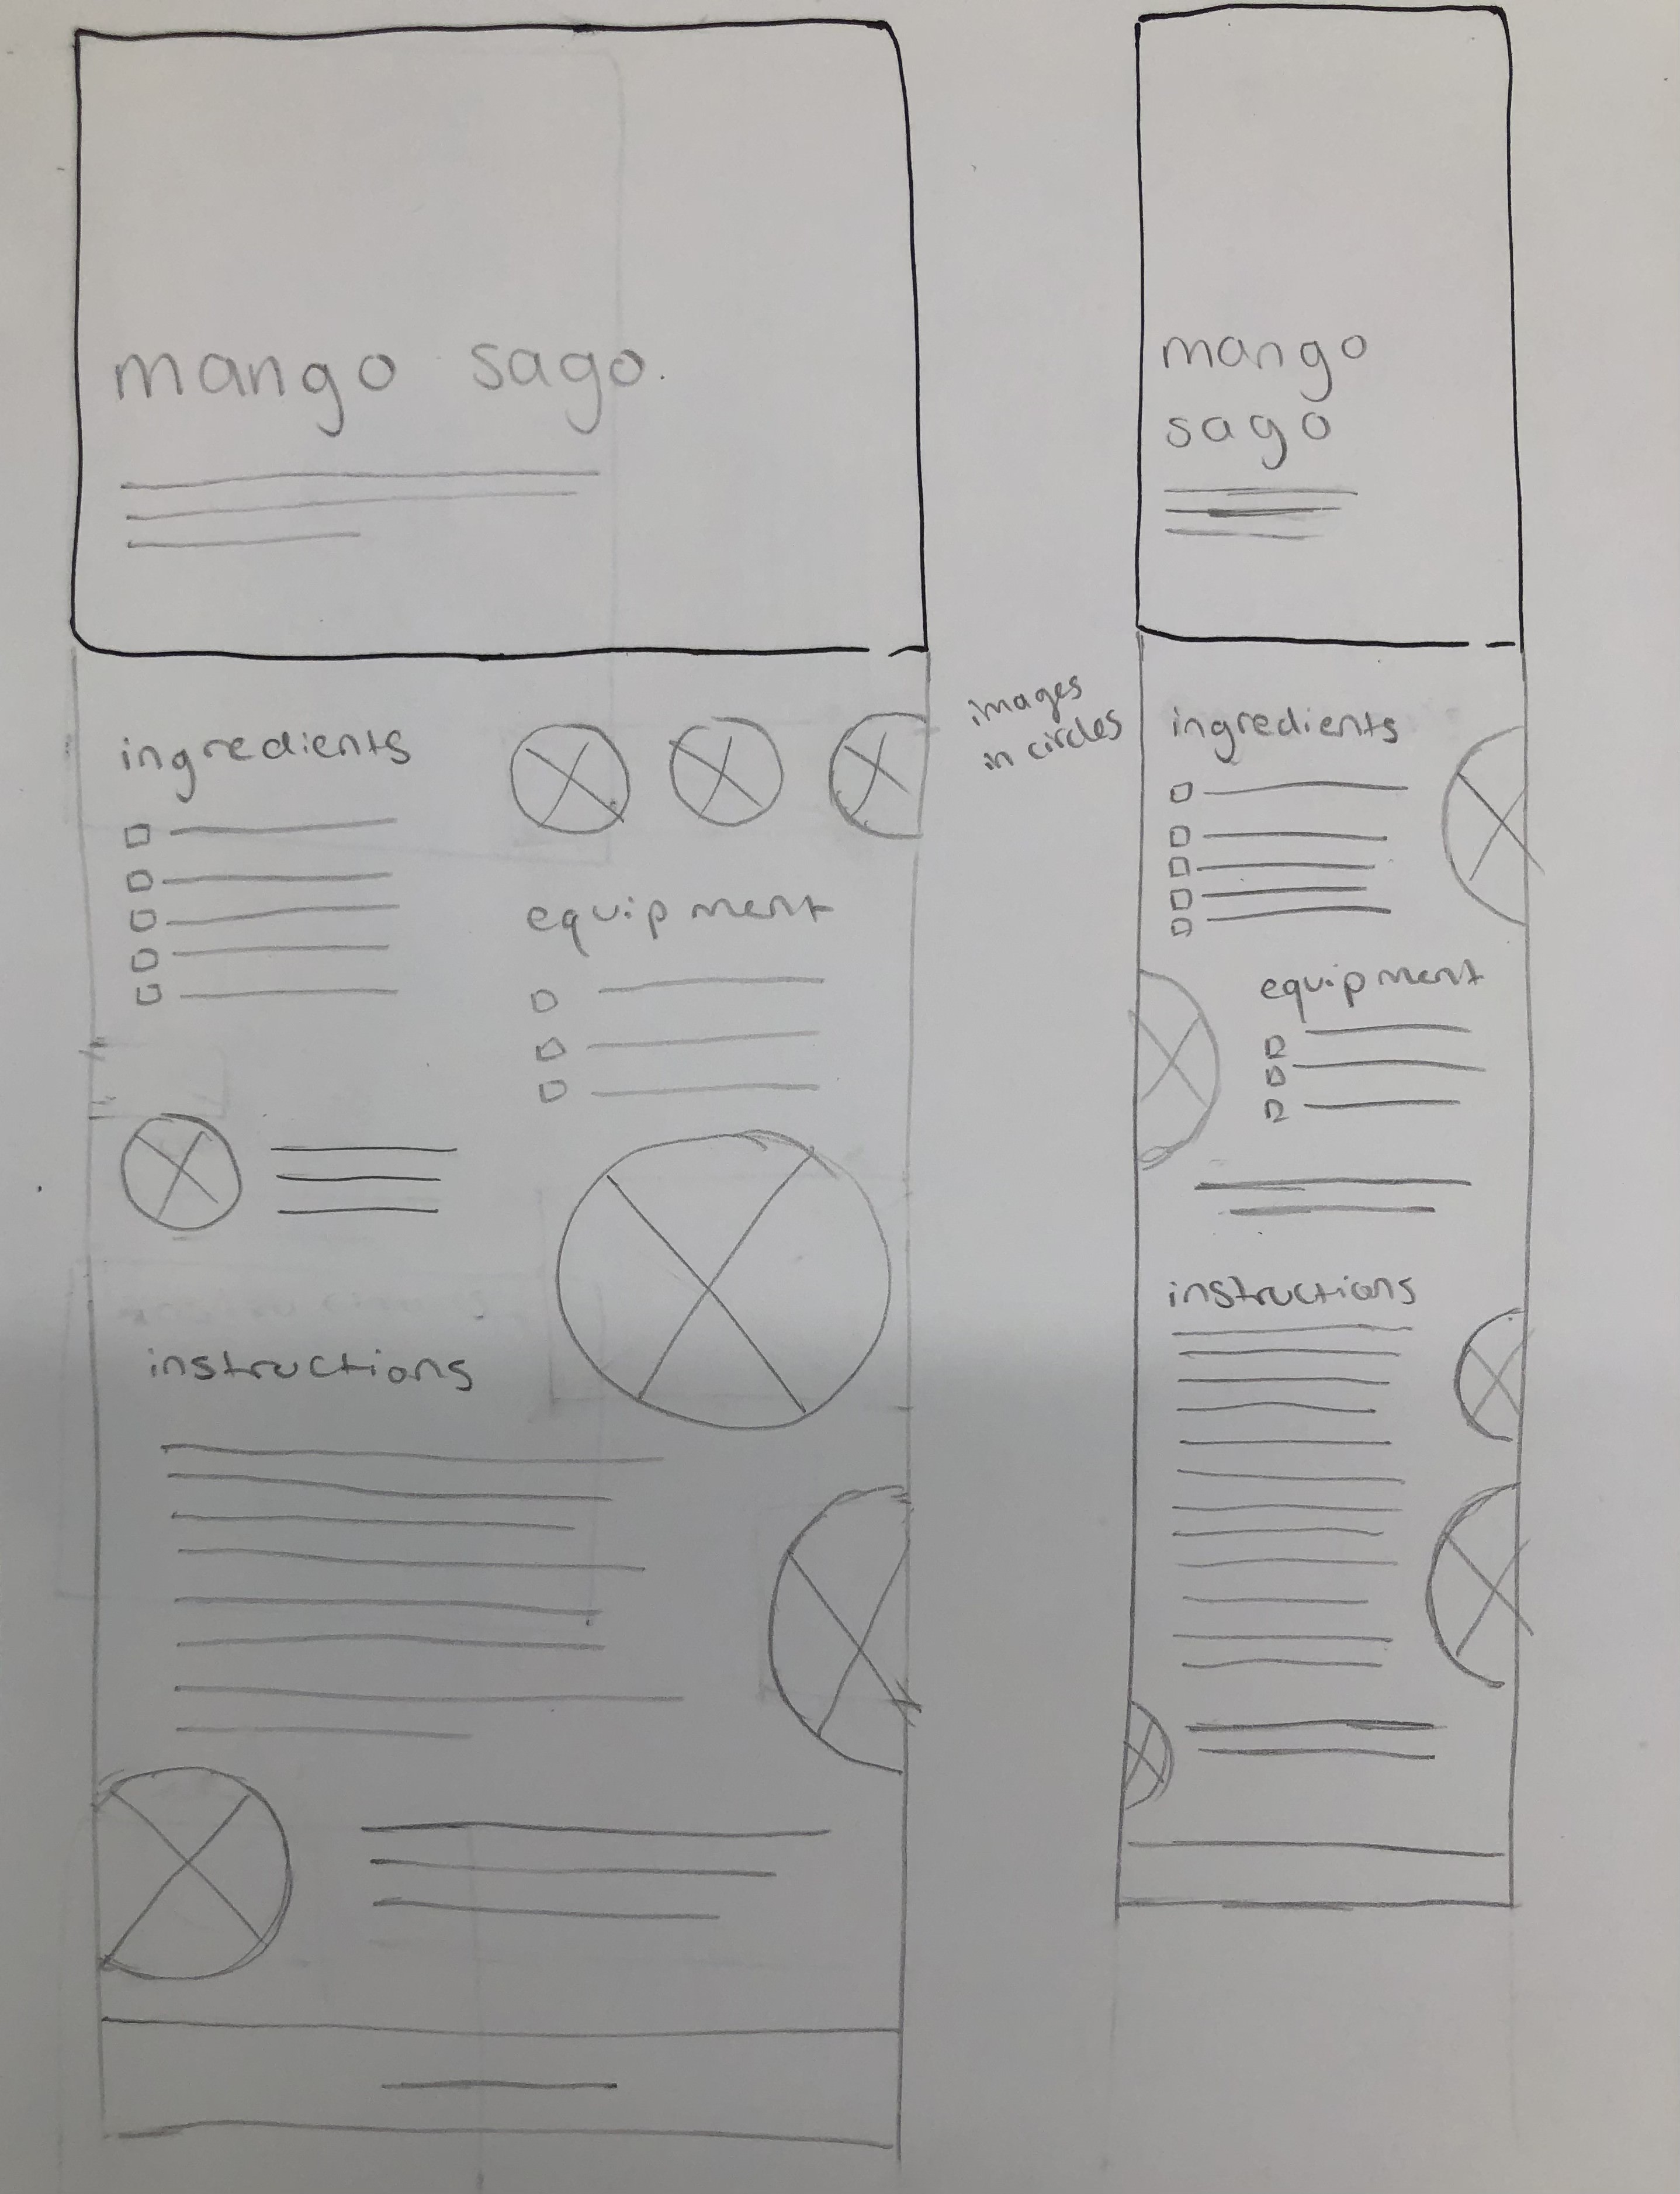 mango sago.
ingredients
equipment
instructions
images
in circles
mango
sago
ingredients
equipment
instructions